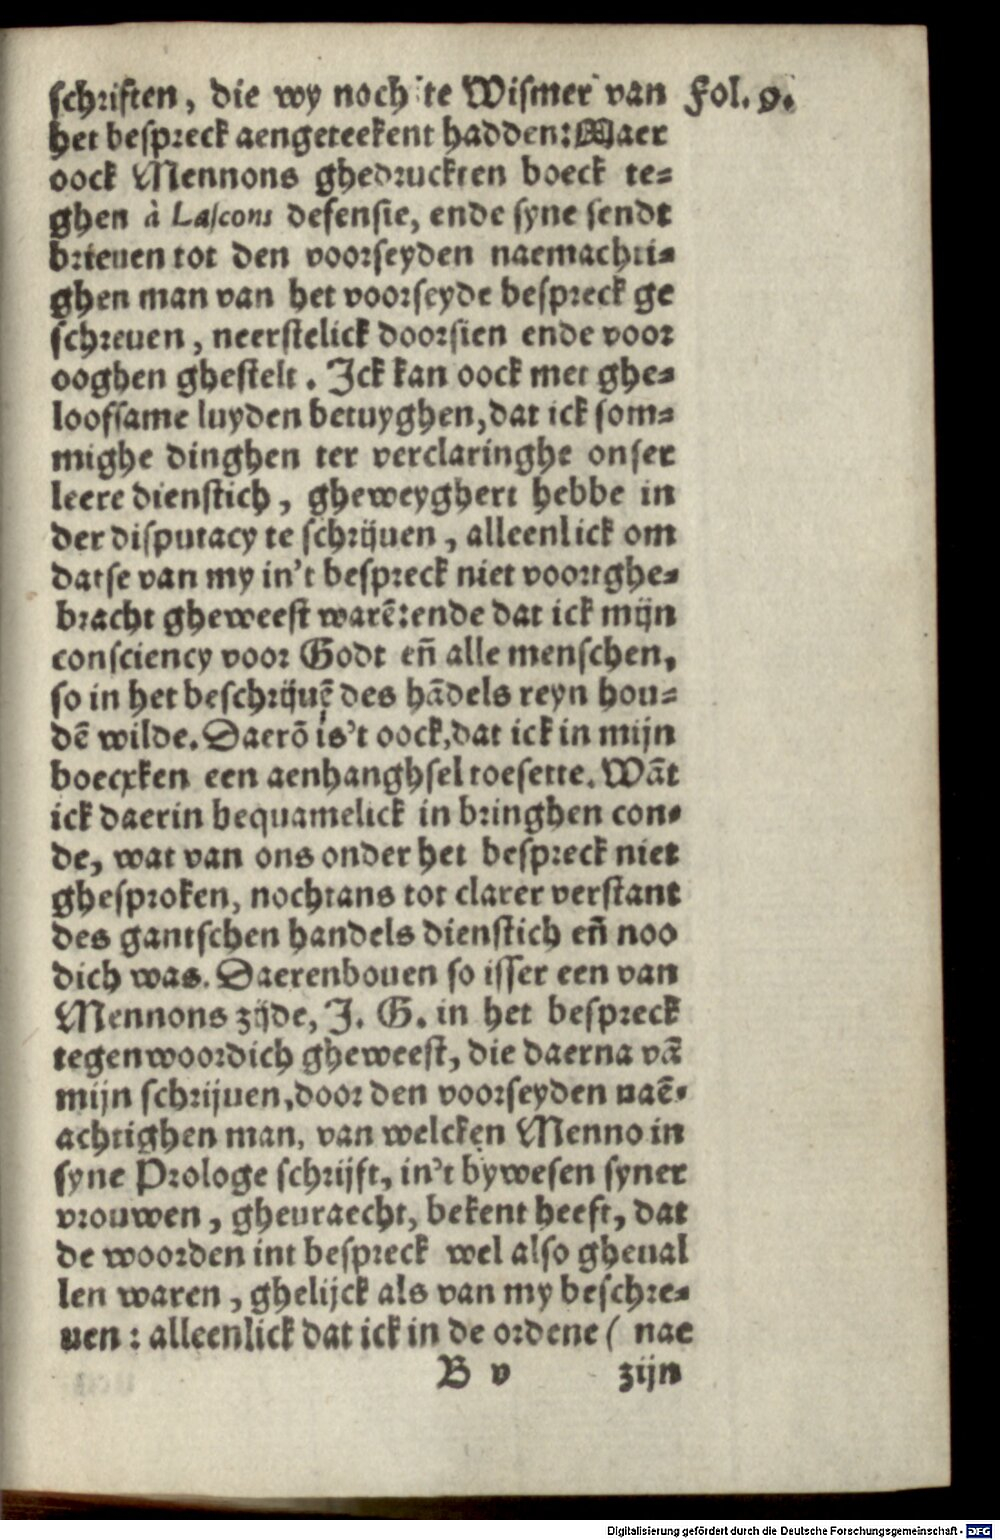 schriften, die wy noch te Wismer van Fol. 9.
het bespreck aengeteekent hadden: Maer
oock Mennons ghedruckten boeck te-
ghen à Lascons defensie, ende syne sendt
brieuen tot den voorseyden naemachti-
ghen man van het voorseyde bespreck ge
schreuen, neerstelick doorsien ende voor
ooghen ghestelt. Ick kan oock met ghe-
loofsame luyden betuyghen, dat ick som-
mighe dinghen ter verclaringhe onser
leere dienstich, gheweyghert hebbe in
der disputacy te schrijuen, alleenlick om
datse van my in't bespreck niet voortghe-
bracht gheweest warē: ende dat ick mijn
consciency voor Godt eñ alle menschen,
so in het beschrijuē des hādels reyn hou-
dē wilde. Daerō is't oock, dat ick in mijn
boecxken een aenhanghsel toesette. Wāt
ick daerin bequamelick in bringhen con-
de, wat van ons onder het bespreck niet
ghesproken, nochtans tot clarer verstant
des gantschen handels dienstich eñ noo
dich was. Daerenbouen so isser een van
Mennons zijde, J. G. in het bespreck
tegenwoordich gheweest, die daerna vā
mijn schrijuen, door den voorseyden naē-
achtighen man, van welcken Menno in
syne Prologe schrijft, in't bywesen syner
vrouwen, gheuraecht, bekent heeft, dat
de woorden int bespreck wel also gheual
len waren, ghelijck als van my beschre-
uen: alleenlick dat ick in de ordene ( nae
B v zijn
Digitalisierung gefördert durch die Deutsche Forschungsgemeinschaft - DFG